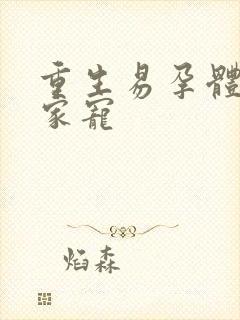 重生易孕體
家寵
焰森